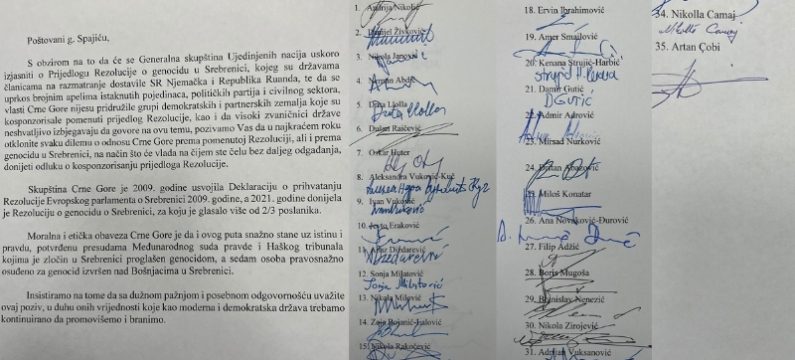 Poštovani g. Spajiću,
S obzirom na to da će se Generalna skupština Ujedinjenih nacija uskoro
izjasniti o Prijedlogu Rezolucije o genocidu u Srebrenici, kojeg su državama
članicama na razmatranje dostavile SR Njemačka i Republika Ruanda, te da se
uprkos brojnim apelima istaknutih pojedinaca, političkih partija i civilnog sektora,
vlasti Crne Gore nijesu pridružile grupi demokratskih i partnerskih zemalja koje su
kosponzorisale pomenuti prijedlog Rezolucije, kao i da visoki zvaničnici države
neshvatljivo izbjegavaju da govore na ovu temu, pozivamo Vas da u najkraćem roku
otklonite svaku dilemu o odnosu Crne Gore prema pomenutoj Rezoluciji, ali i prema
genocidu u Srebrenici, na način što će vlada na čijem ste čelu bez daljeg odgađanja,
donijeti odluku o kosponzorisanju prijedloga Rezolucije.
Skupština Crne Gore je 2009. godine usvojila Deklaraciju o prihvatanju
Rezolucije Evropskog parlamenta o Srebrenici 2009. godine, a 2021. godine donijela
je Rezoluciju o genocidu u Srebrenici, za koju je glasalo više od 2/3 poslanika.
Moralna i etička obaveza Crne Gore je da i ovog puta snažno stane uz istinu i
pravdu, potvrđenu presudama Međunarodnog suda pravde i Haškog tribunala
kojima je zločin u Srebrenici proglašen genocidom, a sedam osoba pravosnažno
osuđeno za genocid izvršen nad Bošnjacima u Srebrenici.
Insistiramo na tome da sa dužnom pažnjom i posebnom odgovornošću uvažite
ovaj poziv, u duhu onih vrijednosti koje kao moderna i demokratska država trebamo
kontinuirano da promovišemo i branimo.
1. Andrija Nikolić
2. Danijel Živković
3. Nikola Janović
4. Nermin Abdić
5. Drita Llolla
Drita Llolla
6. Dalson Raičević
7. Oskar Huter
8. Aleksandra Vuković-Kuč
9. Ivan Vuković
Ivan Vuković
10. Jevto Eraković
11. Amir Dizdarević
12. Sonja Milatović
Sonja Milatović
13. Nikola Milović
14. Zoja Bojanić-Lalović
15. Nikola Rakočević
18. Ervin Ibrahimović
19. Amer Smailović
20. Kenana Strujić-Harbić
21. Damir Gutić
D GUTIĆ
22. Admir Adrović
23. Mirsad Nurković
24. Dritan Abazović
25. Miloš Konatar
26. Ana Novaković-Đurović
27. Filip Adžić
28. Boris Mugoša
29. Branislav Nenezić
30. Nikola Zirojević
31. Adrijan Vuksanović
34. Nikolla Camaj
Nikolla Camaj
35. Artan Çobi